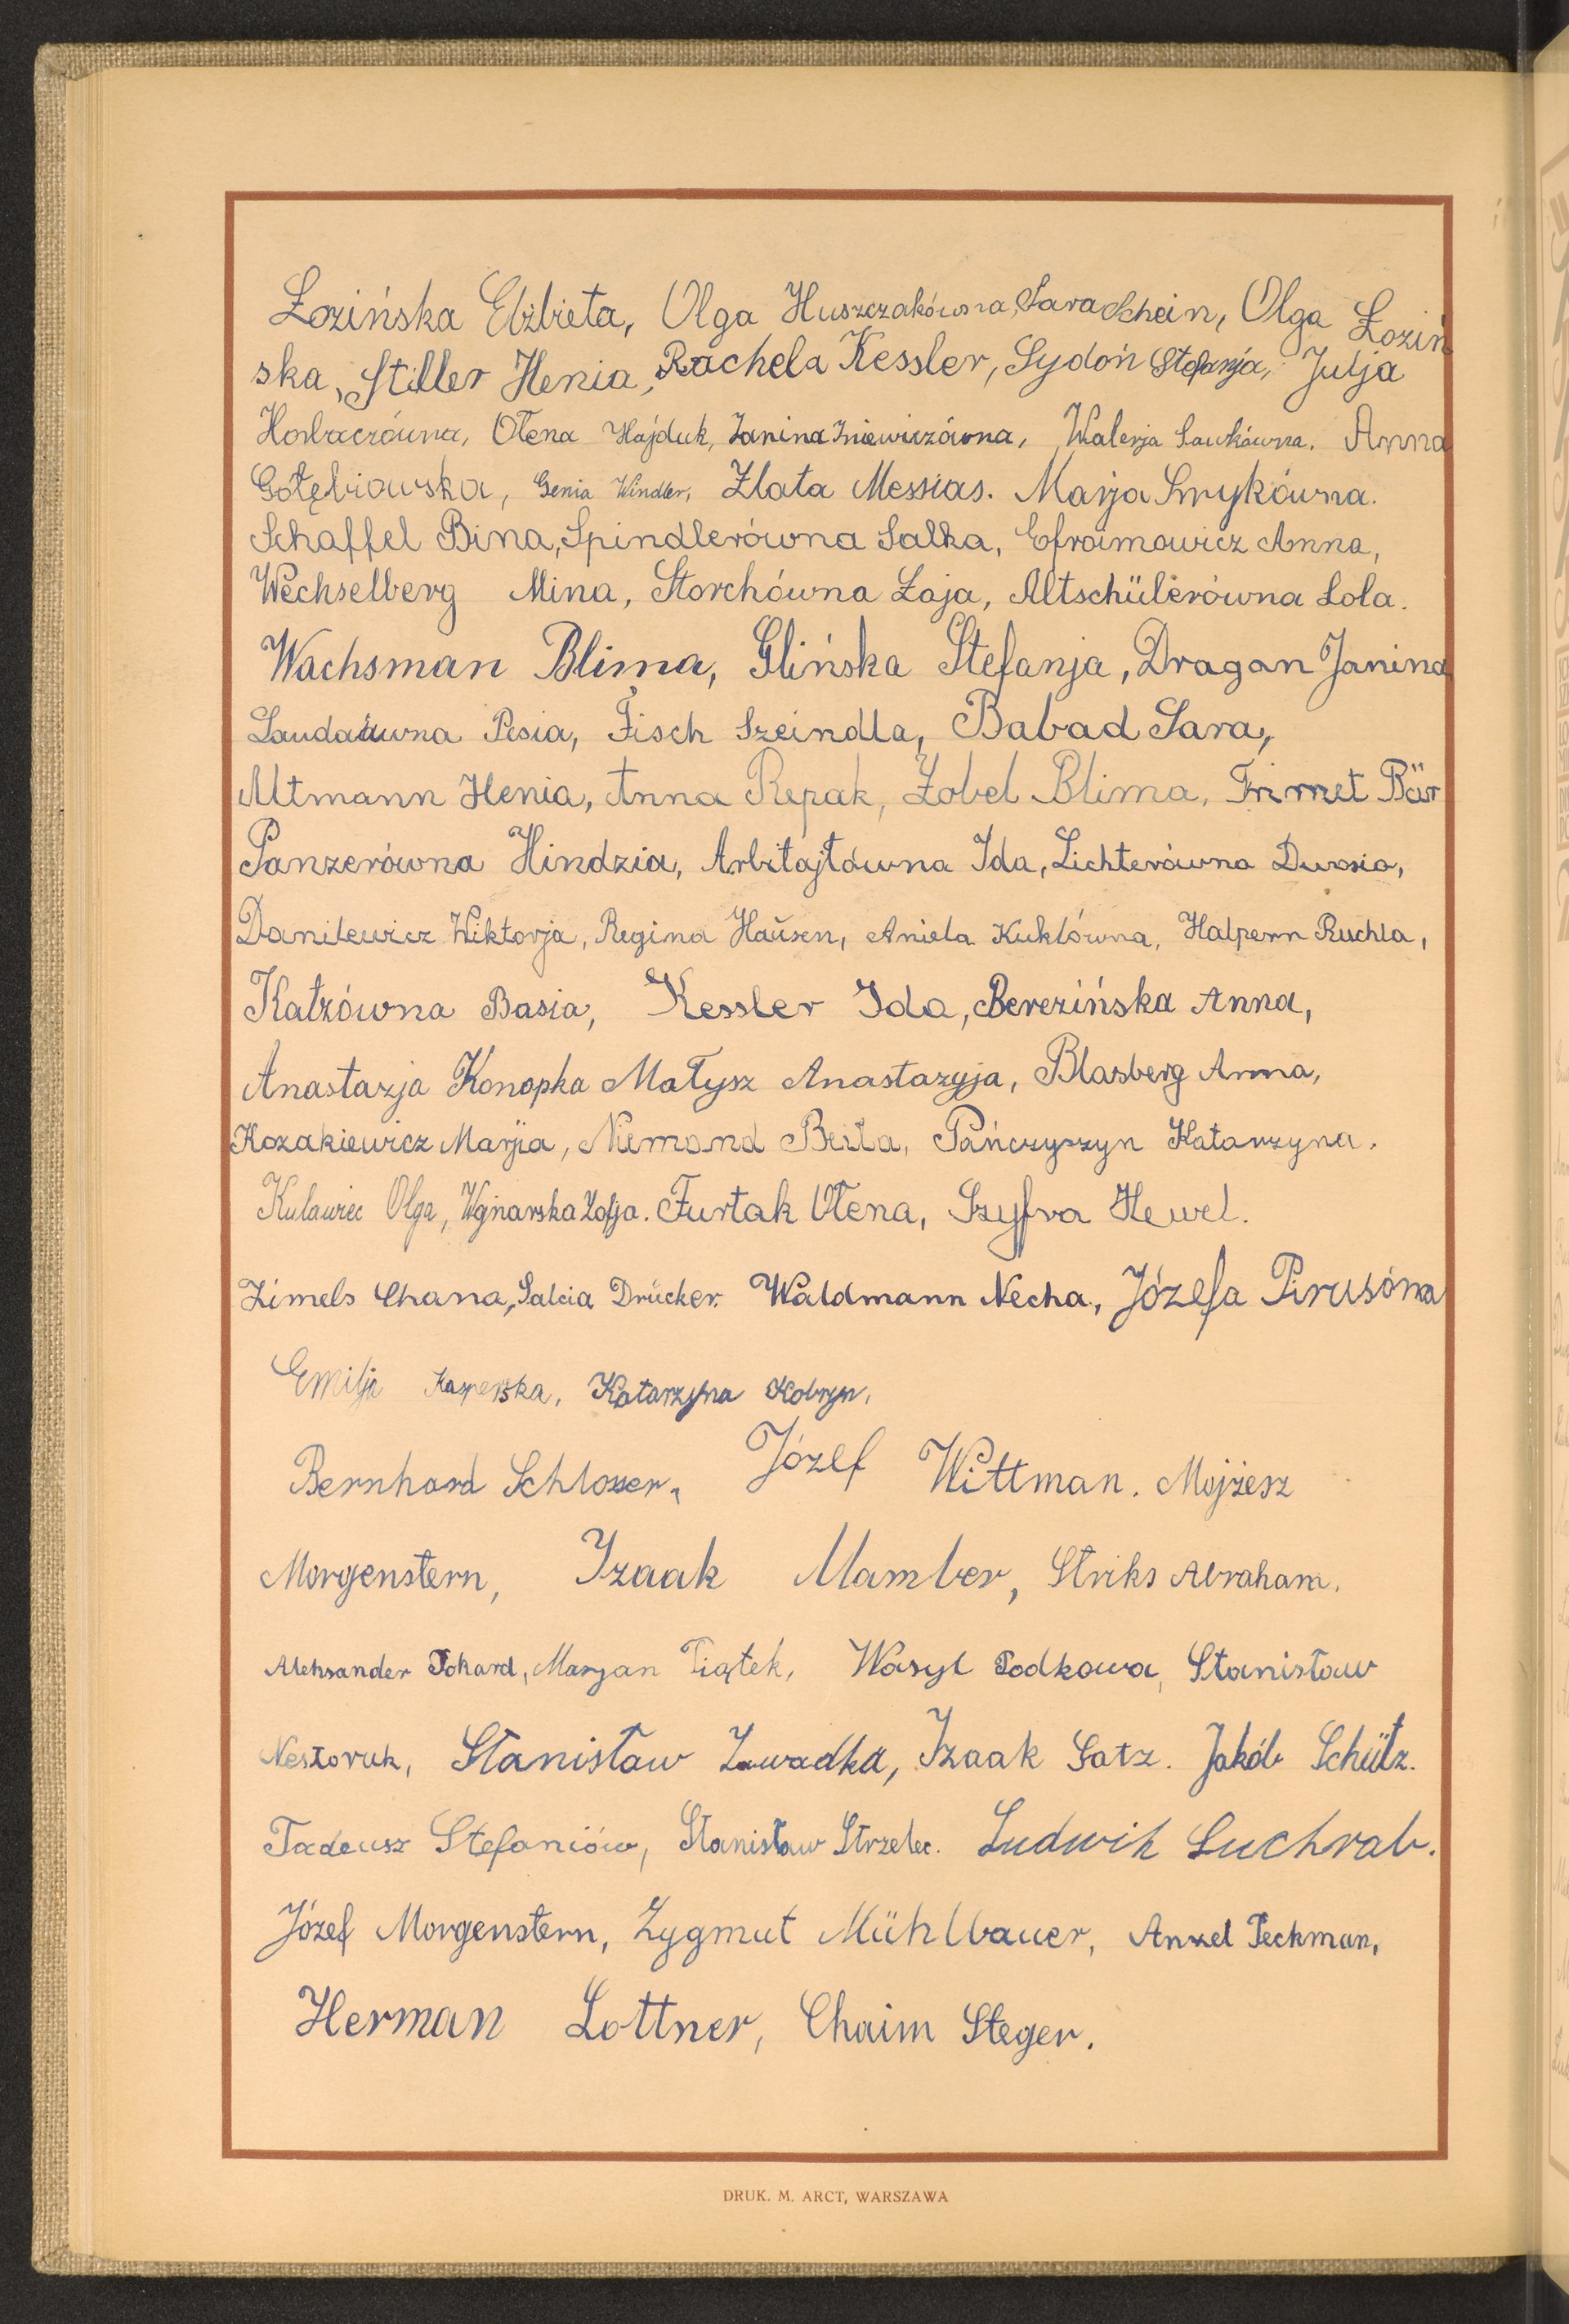 Łozińska Elżbieta, Olga Huszczakówna, Sara Schein, Olga Łoziń
ska, Stiller Henia, Rachela Kessler, Sydoń Stefanja, Julja
Horbaczówna, Ołena Hajduk, Janina Iniewiczówna, Walerja Sawkówna. Anna
Gołębiowska, Genia Windler, Zlata Messias. Marja Smykówna.
Schaffel Bina, Spindlerówna Salka, Efroimowicz Anna,
Wechselberg Mina, Storchówna Łaja, Altschülerówna Lola.
Wachsman Blima, Glińska Stefanja, Dragan Janina
Landauówna Pesia, Fisch Szeindla, Babad Sara,
Altmann Henia, Anna Repak, Zobel Blima, Frimet Bär
Panzerówna Hindzia, Arbitajłówna Ida, Lichterówna Dwosia,
Danilewicz Wiktorja, Regina Hausen, Aniela Kuklówna, Halpern Ruchla,
Katzówna Basia, Kessler Ida, Berezińska Anna,
Anastazja Konopka Małysz Anastazyja, Blasberg Anna,
Kozakiewicz Marjia, Niemand Beila, Pańczyszyn Katarzyna.
Kulawiec Olga, Wojnarska Zofja. Furtak Ołena, Szyfra Hewel.
Zimels Chana, Salcia Drücker. Waldmann Necha, Józefa Pirusówna
Emilja Kasperska, Katarzyna Kobryn,
Bernhard Schlosser, Józef Wittman. Mojżesz
Morgenstern, Izaak Mamber, Striks Abraham.
Aleksander Pokard, Maryan Piątek, Wasyl Podkowa, Stanisław
Nestoruk, Stanisław Zawadka, Izaak Satz. Jakób Schütz.
Tadeusz Stefaniów, Stanisław Strzelec. Ludwik Suchrab.
Józef Morgenstern, Zygmut Mühlbauer, Anzel Peckman,
Herman Lottner, Chaim Steger.
DRUK. M. ARCT, WARSZAWA